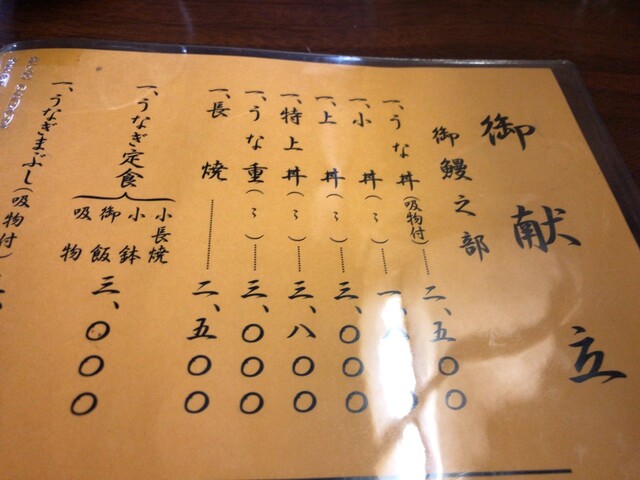 御献立
御鰻之部
一、うな丼(吸物付) 二、五〇〇
一、小丼(〃) 一、八
一、上丼(〃) 三、〇〇〇
一、特上丼(〃) 三、八〇〇
一、うな重(〃) 三、〇〇〇
一、長焼 二、五〇〇
一、うなぎ定食 小長焼 小鉢 御飯 吸物 三、〇〇〇
一、うなぎまぶし(吸物付)